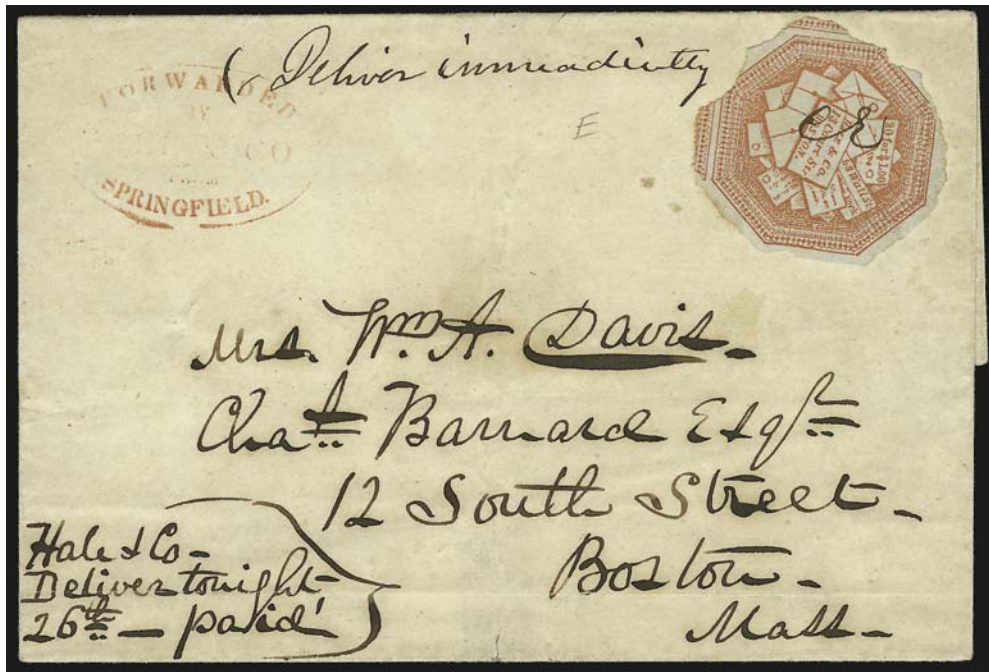 ( Deliver immeadietly
FORWARDED
BY
CO
SPRINGFIELD.
E
20 for $1.00
& CO.
BOSTON.
Mrs. Wm. A. Davis.
Chas. Barnard Esqr.
12 South Street-
Boston-
Mass-
Hale & Co-
Deliver tonight
26th - paid